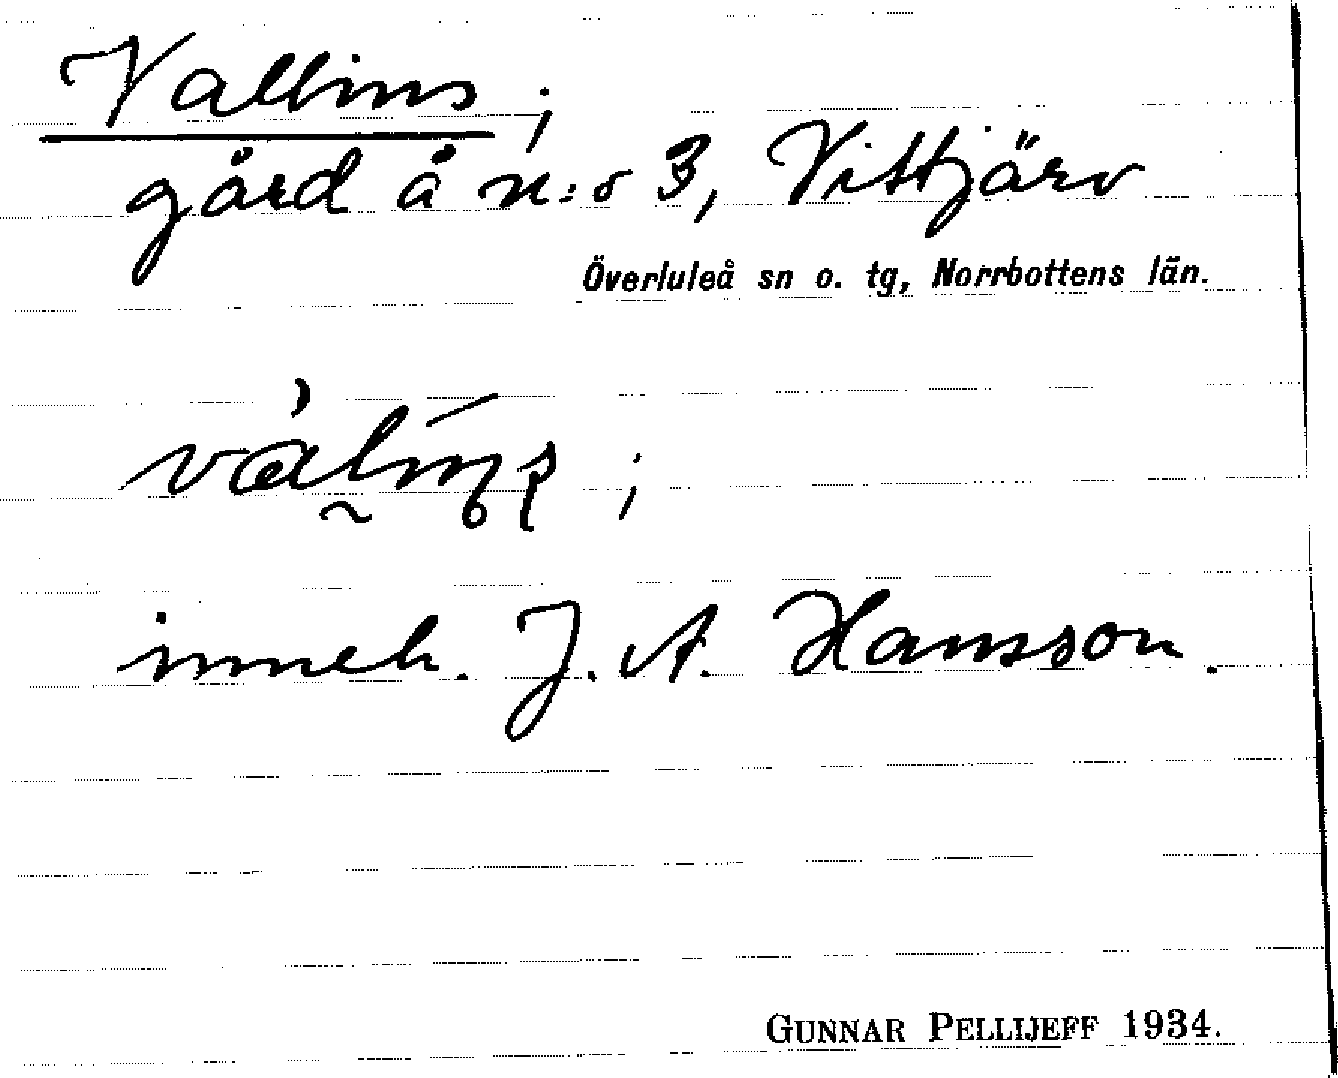 Vallins;
gård å n:o 3, Vittjärv
Överluleå sn o. tg, Norrbottens län.
inneh. J. A. Hansson.
GUNNAR PELLIJEFF 1934.